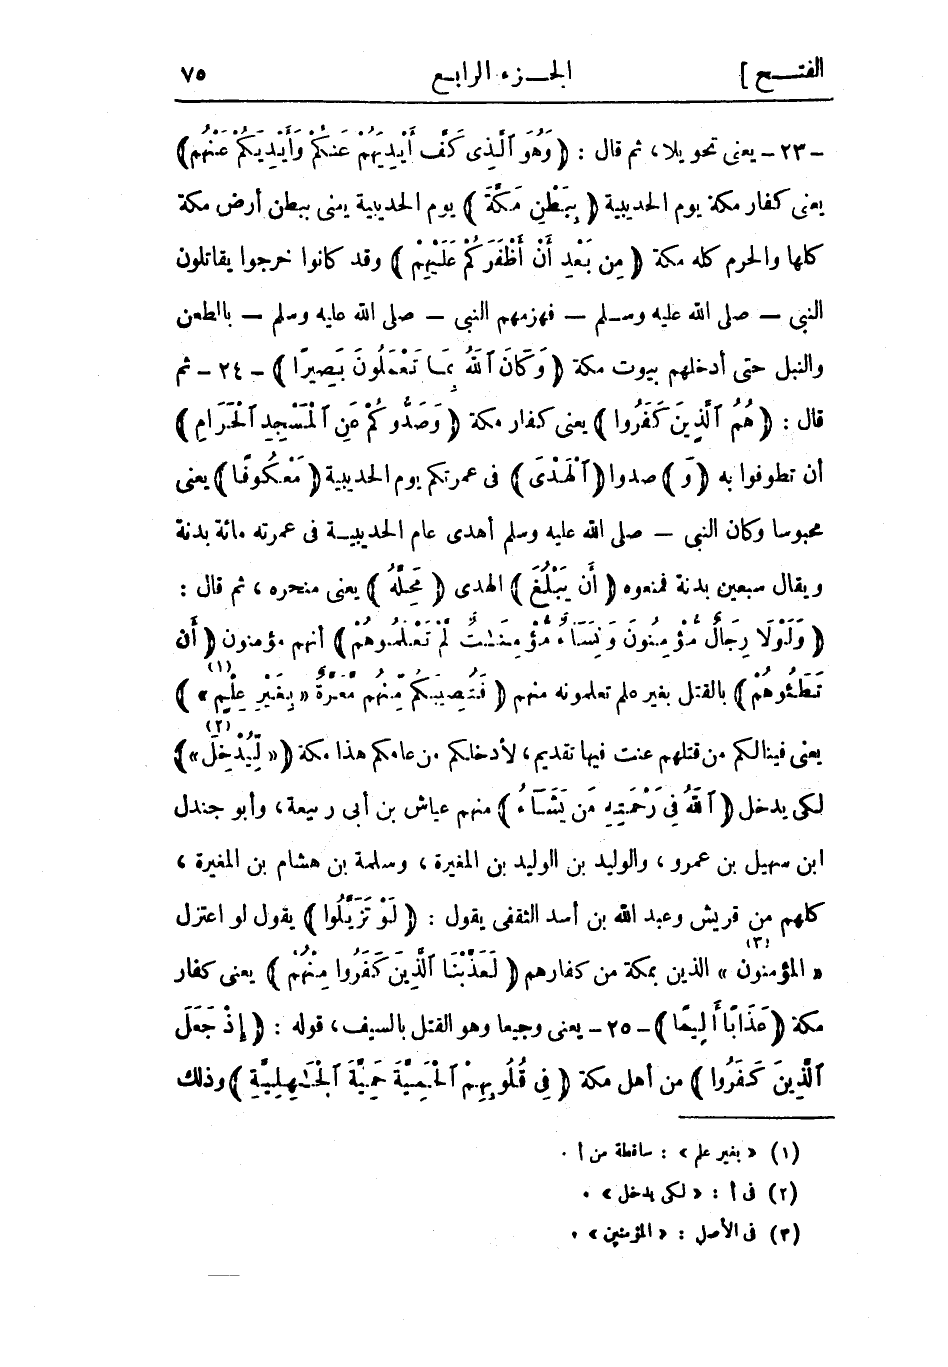 الفتـــح ]
الجـــزء الرابع
٧٥
ـ ٢٣ ـ يعنى تحويلا، ثم قال : ﴿ وَهُوَ ٱلَّذِى كَفَّ أَيْدِيَهُمْ عَنكُمْ وَأَيْدِيَكُمْ عَنْهُم﴾
يعنى كفار مكة يوم الحديبية ﴿ بِبَطْنِ مَكَّةَ ﴾ يوم الحديبية يعنى ببطن أرض مكة
كلها والحرم كله مكة ﴿ مِن بَعْدِ أَنْ أَظْفَرَكُمْ عَلَيْهِمْ ﴾ وقد كانوا خرجوا يقاتلون
النبى — صلى الله عليه وسـلم — فهزمهم النبى — صلى الله عليه وسلم — بالطعن
والنبل حتى أدخلهم بيوت مكة ﴿ وَكَانَ ٱللَّهُ بِمَا تَعْمَلُونَ بَصِيرًا ﴾ ـ ٢٤ ـ ثم
قال : ﴿ هُمُ ٱلَّذِينَ كَفَرُوا ﴾ يعنى كفار مكة ﴿ وَصَدُّوكُمْ عَنِ ٱلْمَسْجِدِ ٱلْحَرَامِ ﴾
أن تطوفوا به ﴿ وَ ﴾ صدوا ﴿ ٱلْهَدْىَ ﴾ فى عمرتكم يوم الحديبية ﴿ مَعْكُوفًا ﴾ يعنى
محبوسا وكان النبى — صلى الله عليه وسلم أهدى عام الحديبيـة فى عمرته مائة بدنة
ويقال سبعين بدنة فمنعوه ﴿ أَن يَبْلُغَ ﴾ الهدى ﴿ مَحِلَّهُ ﴾ يعنى منحره ، ثم قال :
﴿ وَلَوْلَا رِجَالٌ مُؤْمِنُونَ وَنِسَاءٌ مُؤْمِنَـٰتٌ لَّمْ تَعْلَمُوهُمْ ﴾ أنهم مؤمنون ﴿ أَن
تَطَئُوهُمْ ﴾ بالقتل بغير علم تعلمونه منهم ﴿ فَتُصِيبَكُم مِّنْهُم مَّعَرَّةٌ « بِغَيْرِ عِلْمٍ » (١) ﴾
يعنى فينالكم من قتلهم عنت فيها تقديم، لأدخلكم من عامكم هذا مكة ﴿ « لِّيُدْخِلَ » (٢) ﴾
لكى يدخل ﴿ ٱللَّهُ فِى رَحْمَتِهِ مَن يَشَآءُ ﴾ منهم عياش بن أبى ربيعة، وأبو جندل
ابن سهيل بن عمرو ، والوليد بن الوليد بن المغيرة ، وسلمة بن هشام بن المغيرة ،
كلهم من قريش وعبد الله بن أسد الثقفى يقول : ﴿ لَوْ تَزَيَّلُوا ﴾ يقول لو اعتزل
« المؤمنون (٣) » الذين بمكة من كفارهم ﴿ لَعَذَّبْنَا ٱلَّذِينَ كَفَرُوا مِنْهُمْ ﴾ يعنى كفار
مكة ﴿ عَذَابًا أَلِيمًا ﴾ ـ ٢٥ ـ يعنى وجيعا وهو القتل بالسيف، قوله : ﴿ إِذْ جَعَلَ
ٱلَّذِينَ كَفَرُوا ﴾ من أهل مكة ﴿ فِى قُلُوبِهِمُ ٱلْحَمِيَّةَ حَمِيَّةَ ٱلْجَـٰهِلِيَّةِ ﴾ وذلك
(١) « بغير علم » : ساقطة من أ .
(٢) فى أ : « لكى يدخل » .
(٣) فى الأصل : « المؤمنين » .